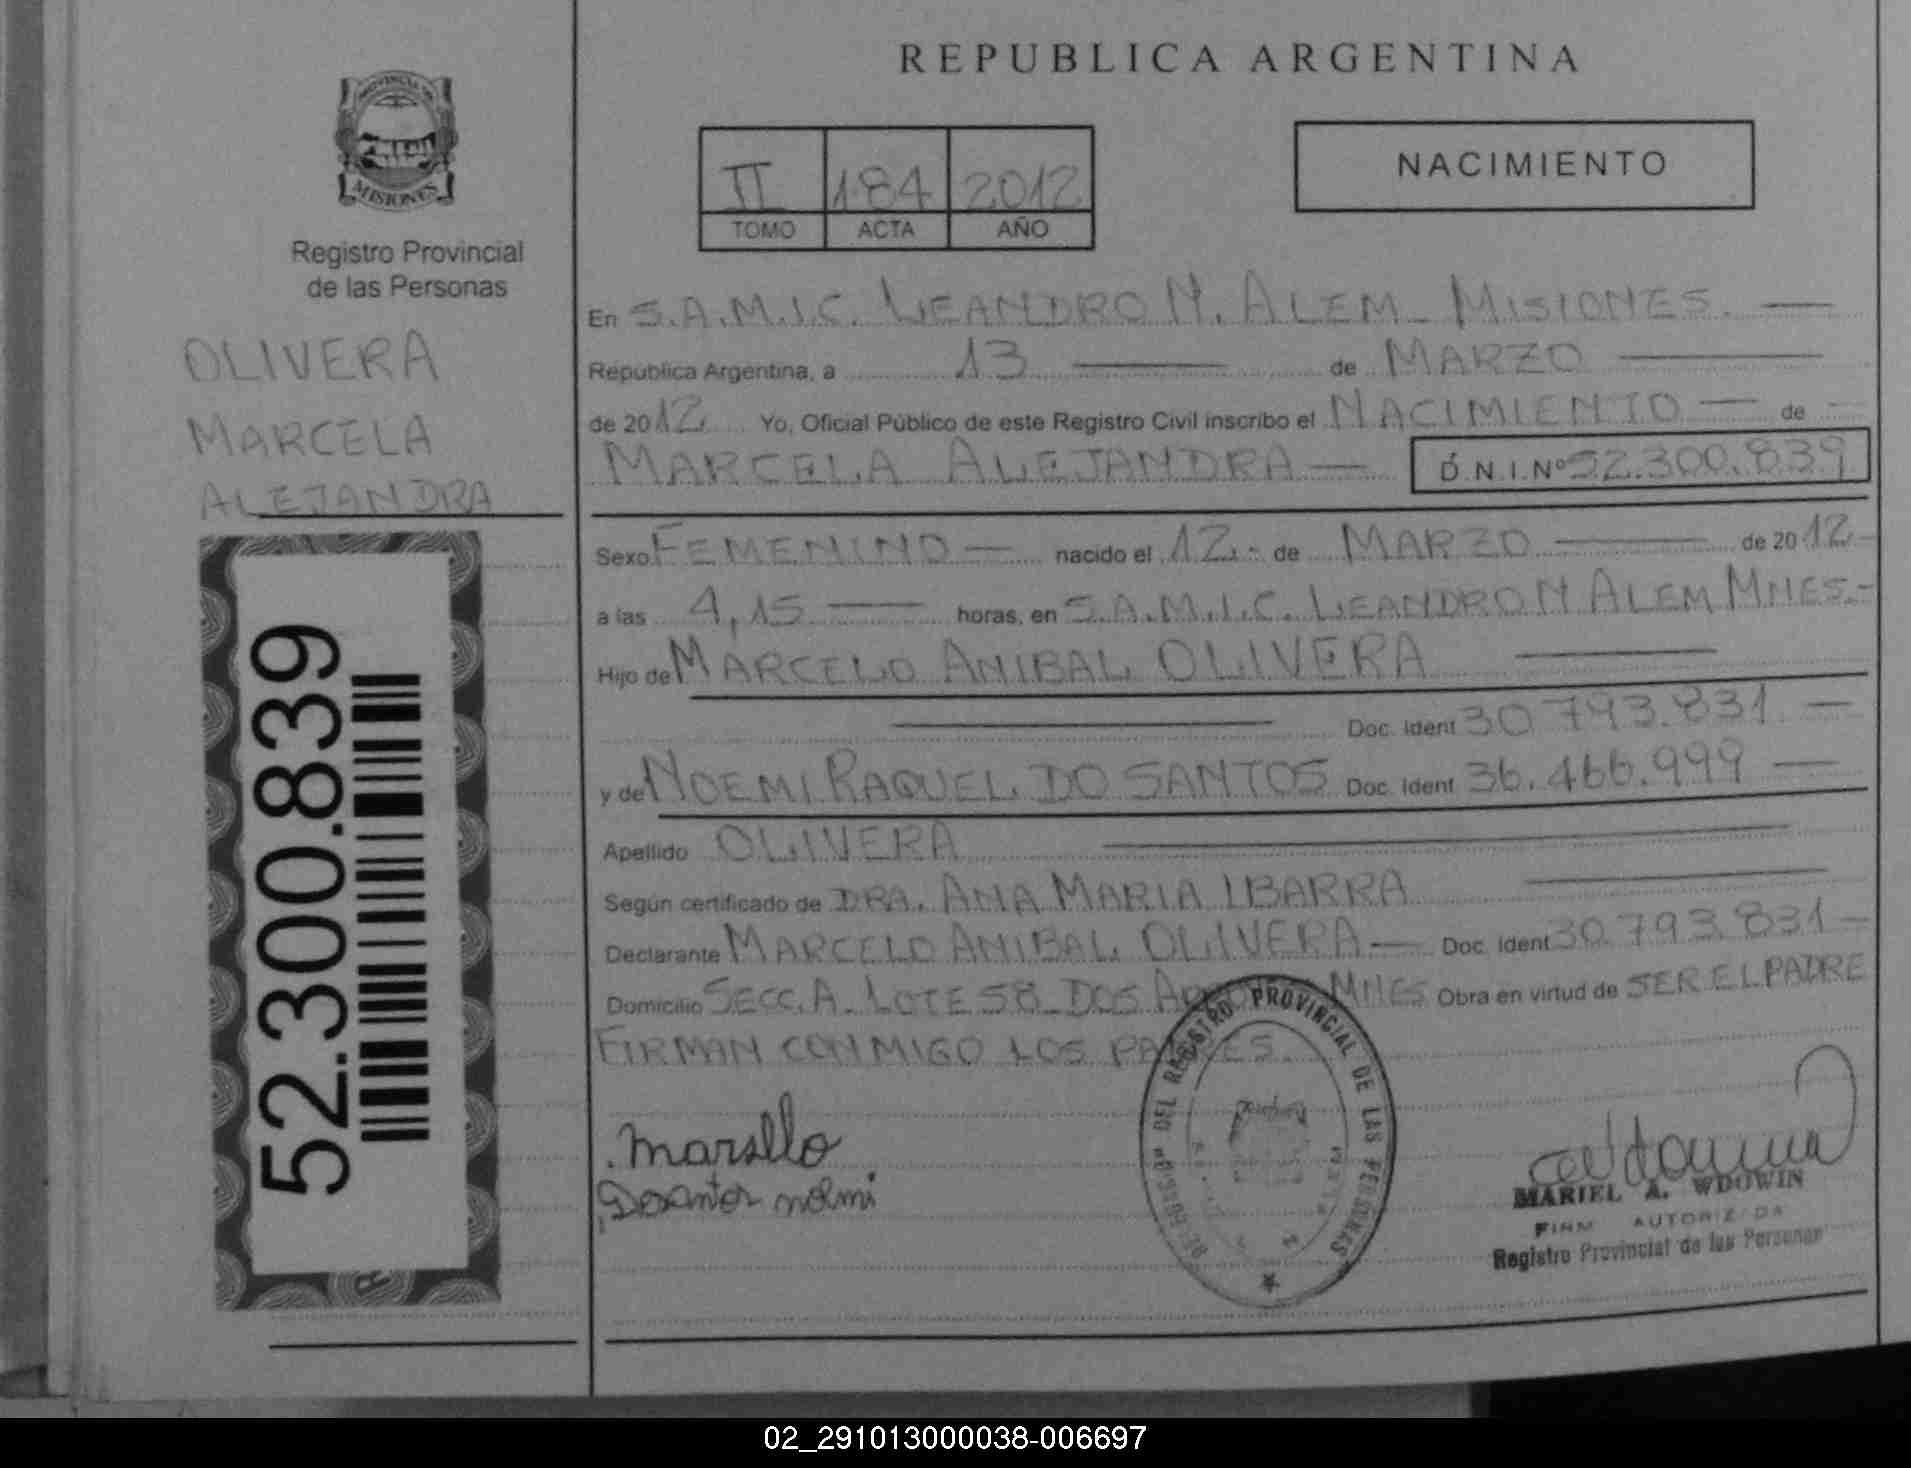 REPUBLICA ARGENTINA
PROVINCIA DE
MISIONES
Registro Provincial
de las Personas
OLIVERA
MARCELA
ALEJANDRA
52.300.839
II 184 2012
TOMO ACTA AÑO
NACIMIENTO
En S.A.M.I.C. LEANDRO N. ALEM - MISIONES.
República Argentina, a 13 de MARZO
de 2012 Yo, Oficial Público de este Registro Civil inscribo el NACIMIENTO de
MARCELA ALEJANDRA D.N.I.Nº 52.300.839
Sexo FEMENINO nacido el 12 de MARZO de 2012
a las 4,15 horas, en S.A.M.I.C. LEANDRO N ALEM MNES.-
Hijo de MARCELO ANIBAL OLIVERA
Doc. Ident 30 793.831
y de NOEMI RAQUEL DO SANTOS Doc. Ident 36.466.999
Apellido OLIVERA
Según certificado de DRA. ANA MARIA IBARRA
Declarante MARCELO ANIBAL OLIVERA Doc. Ident 30.793.831
Domicilio SECC. A. LOTE 58 - DOS MNES Obra en virtud de SER EL PADRE
FIRMAN CONMIGO LOS PADRES.
DEL REGISTRO PROVINCIAL DE LAS PERSONAS
Marsllo
Dosantos noemi
MARIEL A. WDOWIN
FIRM AUTORIZADA
Registro Provincial de las Personas
02_291013000038-006697